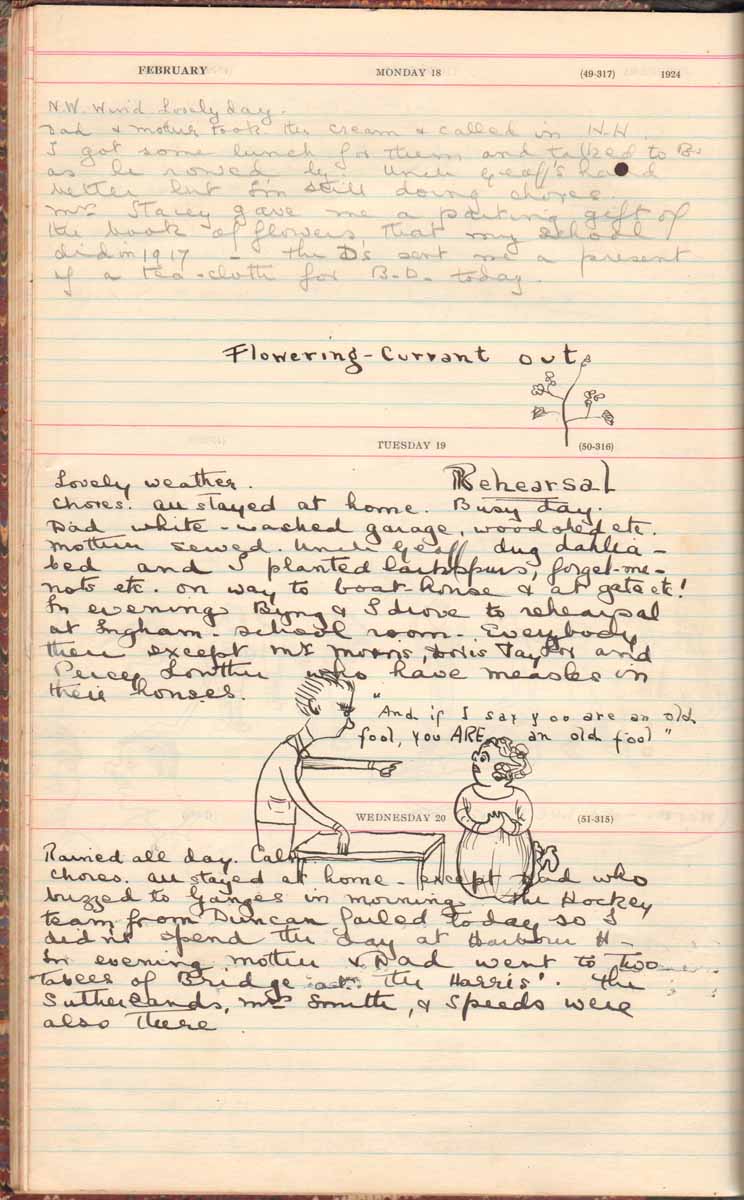 FEBRUARY MONDAY 18 (49-317) 1924
N.W. Wind Lovely day.
Dad & mother took the cream & called in H.H.
I got some lunch for them and talked to B.
as he rowed by. Uncle Geoff's hand
better but I'm still doing chores.
Mrs Stacey gave me a parting gift of
the book of flowers that my school
did in 1917 - the D's sent me a present
of a tea-cloth for B.D. today.
Flowering-Currant out.
TUESDAY 19 (50-316)
Lovely weather. Rehearsal
Chores. All stayed at home. Busy day.
Dad white-washed garage, woodshed etc.
Mother sewed. Uncle Geoff dug dahlia-
bed and I planted larkspurs, forget-me-
nots etc. on way to boat-house & at gate etc!
In evening Byng & I drove to rehearsal
at Ingham-school room. Everybody
there except Mrs Morris, Doris Taylor and
Percy Lowther who have measles in
their houses.
"And if I say you are an old
fool, you ARE an old fool"
WEDNESDAY 20 (51-315)
Rained all day. Calm
Chores. All stayed at home - except Dad who
buzzed to Ganges in morning. The Hockey
team from Duncan failed today so I
didn't spend the day at Harbour H-
In evening mother & Dad went to two
tables of Bridge at the Harris'. The
Sutherlands, Mrs Smith, & Speeds were
also there